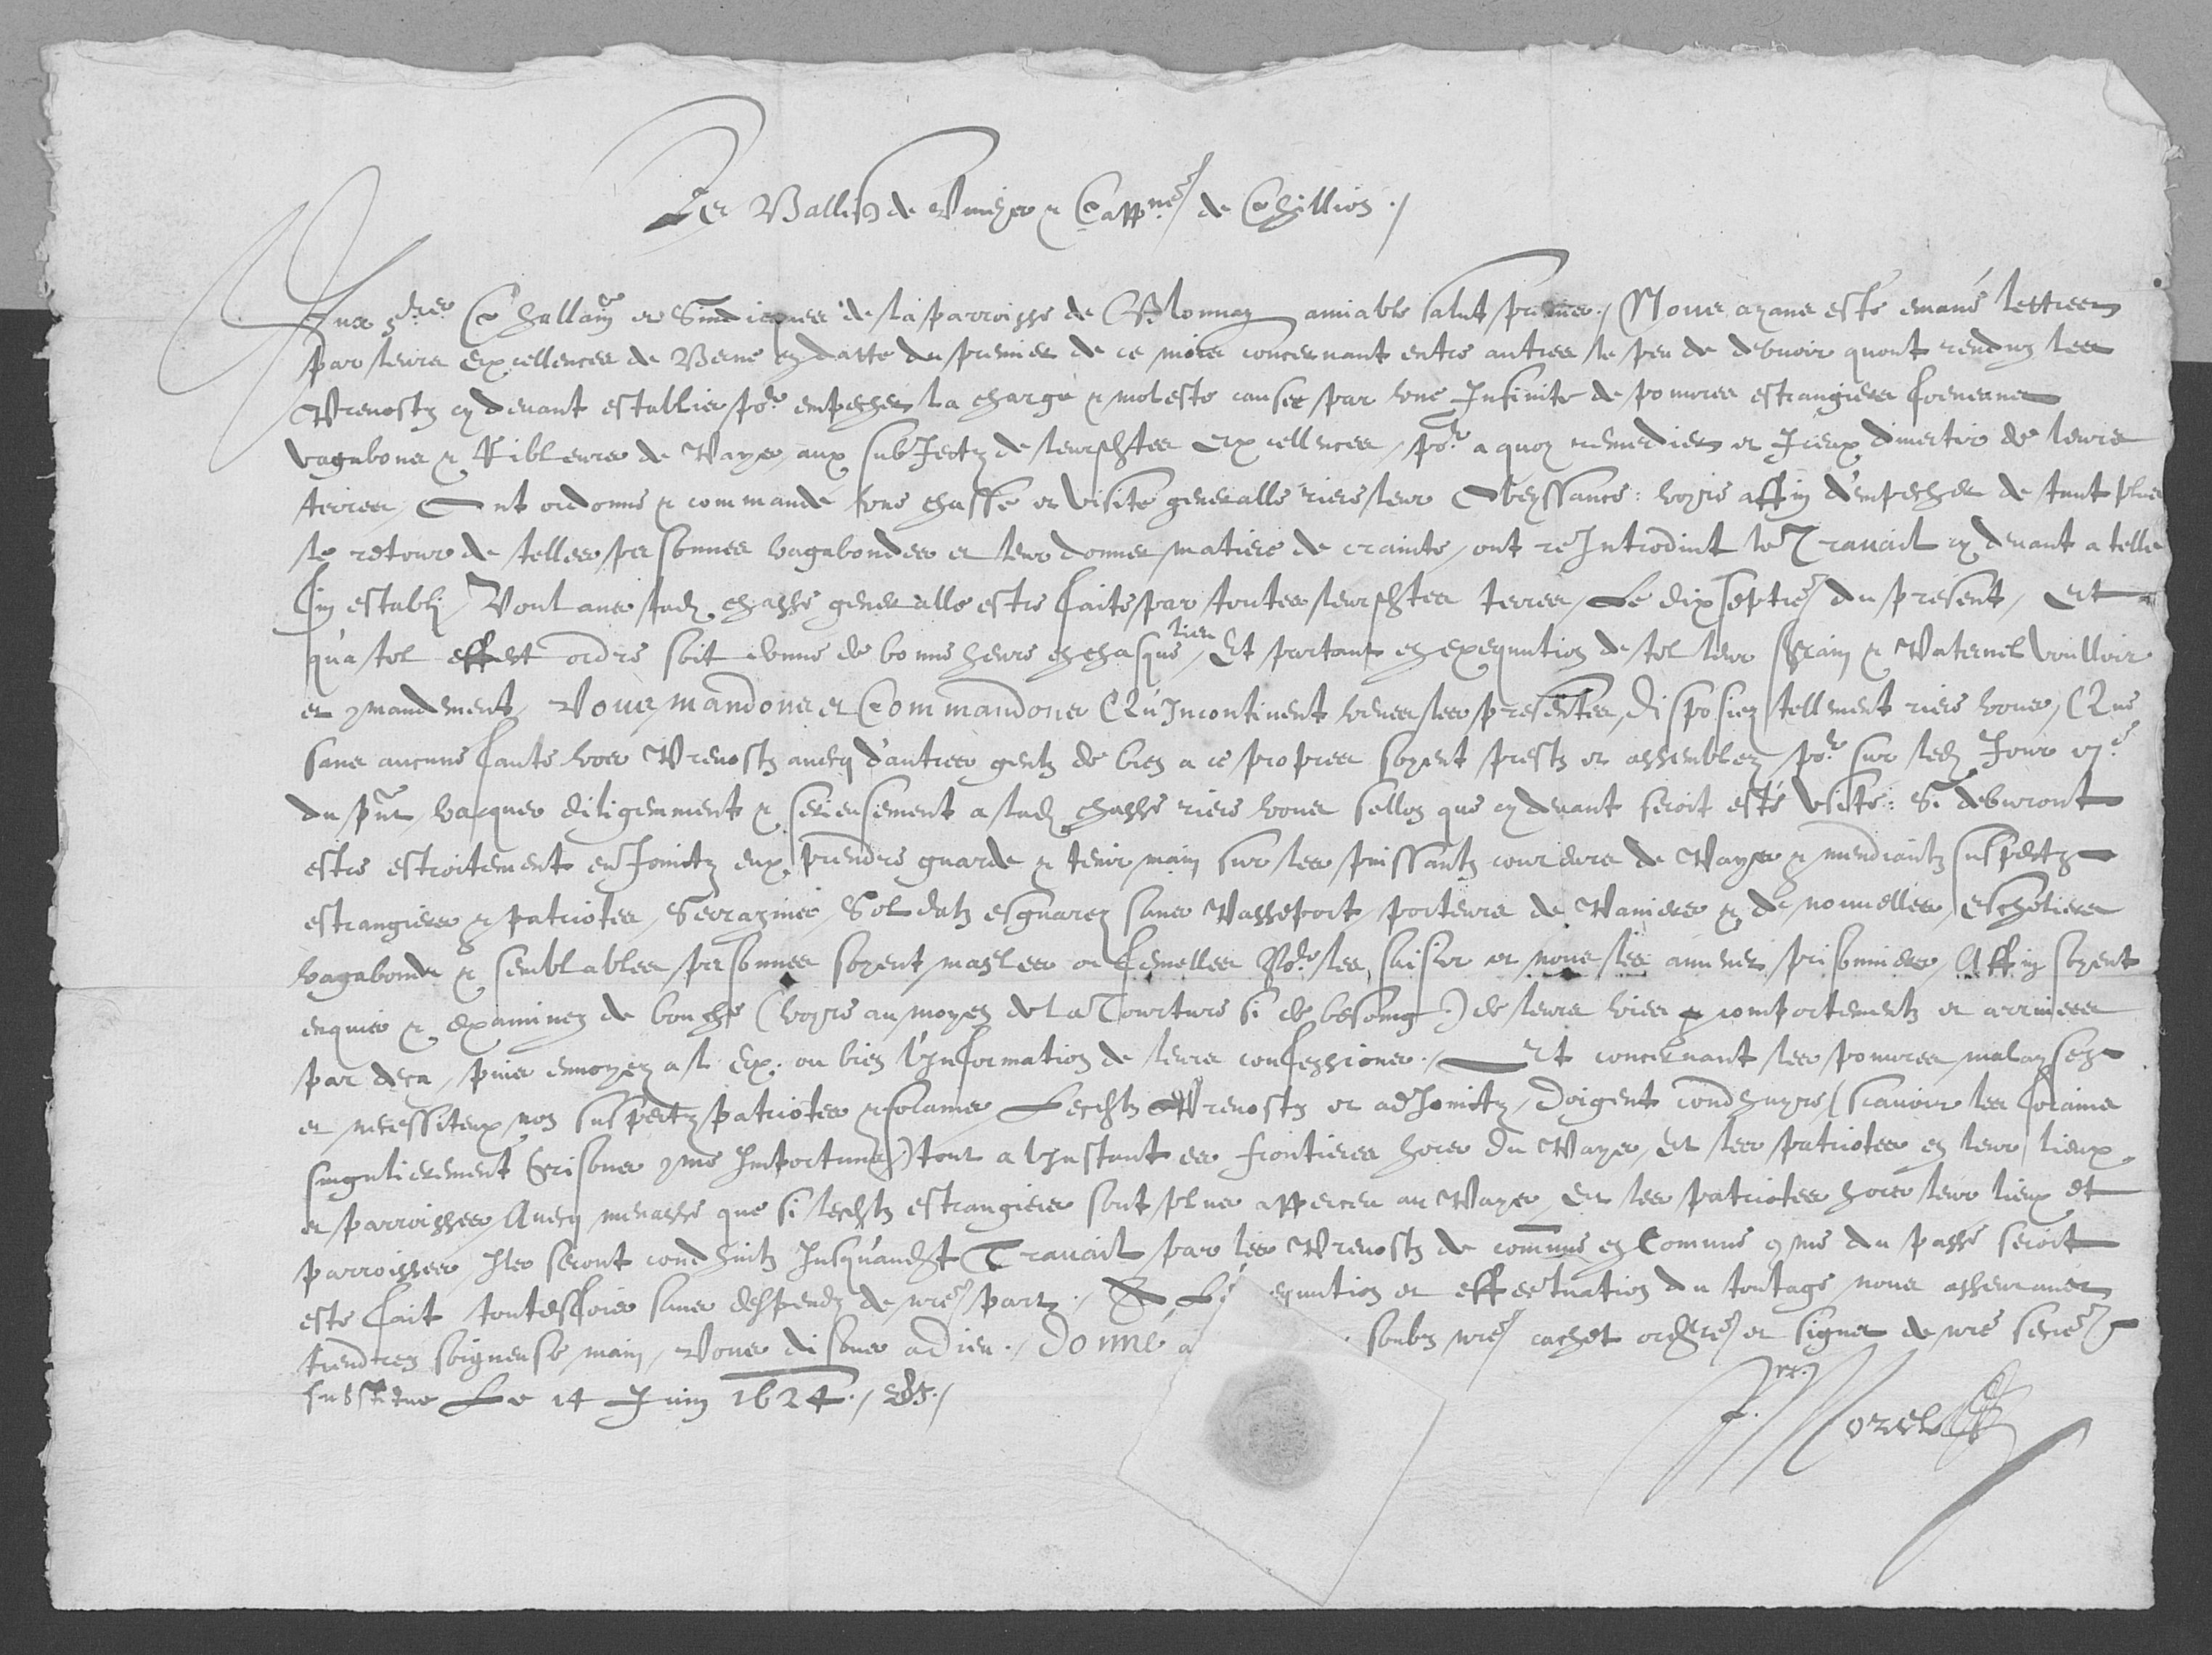 Le Ballif de Vevey & Cappne de Chillion ./
Aux hnes Challain et Sindicques de la parroisse de Blonnay amiable salut premis ./ Nous ayans esté emané lettres
par leurs Excellences de Berne en datte du premier de ce mois concernant entre autres le peu de debvoir quont renduz les
Prevostz cy devant establis por empecher la charge & moleste causee par une Infinite de pouvres estrangiers
vagabons & Ribleurs de Pays, aux subjectz de leursdites Excellences, por a quoy remedier et iceux divertir de leurs
terres, Ont ordonne & commande une chasse et visite generalle riere leur Obeyssance: voyre affin d'empecher de tant plus
le retour de telles personnes vagabondes et leur donner matiere de crainte, ont reIntroduit le Travail cy devant a telle
fin establi, Voulans lad. chasse generalle estre faite par toutes leursdites terres, Le dixseptie du present, Et
qu'a tel effect ordre soit donne de bonne heure en chasque lieu, Et partant en exequution de tel leur Sovrain & Paternel voulloir
et mandement, Vous mandons et Commandons Qu'Incontinent veues les presentes, disposiez tellement riere vous, Que
sans aucune faute vos Prevostz avecq d'autres gentz de bien a ce propres soyent prestz et assemblez por sur led. Jour
du pnt vacquer diligemment & serieusement a lad. chasse riere vous sellon que cy devant seroit esté usité: Si debvront
estre estroitement enJoinctz eux prendre guarde & tenir main sur les puissantz coureurs de Pays & mendiantz suspectz
estrangiers & patriotes, Serrazins, Soldatz esguarez sans Passeport, porteurs de Paniers & de nouvelles,
vagabonds & semblables personnes soyent masles ou femelles Por les saisir et nous les amener prisonniers, Affin soyent
enquis & examinez de bouche (voyre au moyen de la Tourture si de besoing) de leurs vies & comportementz et arrivees
par deca, puis envoyez a l. Ex. ou bien l'Information de leurs confessions ./ Et concernant les pouvres malaysez
et necessiteux non suspectz patriotes & forains Lesdits Prevostz et adJoinctz, doigent condhuyre (scavoir les forains
singulierement Grisons come Importuns) tout a l'Instant es frontieres hors du Pays, Et les patriotes en leur lieux
et parroisses, Avecq menasse que si lesdits estrangiers sont plus apperceu au Pays, Et les patriotes hors leur lieux et
parroisses, Ils seront condhuitz Jusqu'audit Travail par les Prevostz de commune en Comune come du passe seroit
este fait toutesfois sans despendz de nre part. exequution et effectuation du toutage nous asseurans
tiendrez soigneuse main, Vous disons adieu ./ Donné soubz nre cachet ordre et signet de nre secre
substitue Le 14 Juin 1624 ./
Morel